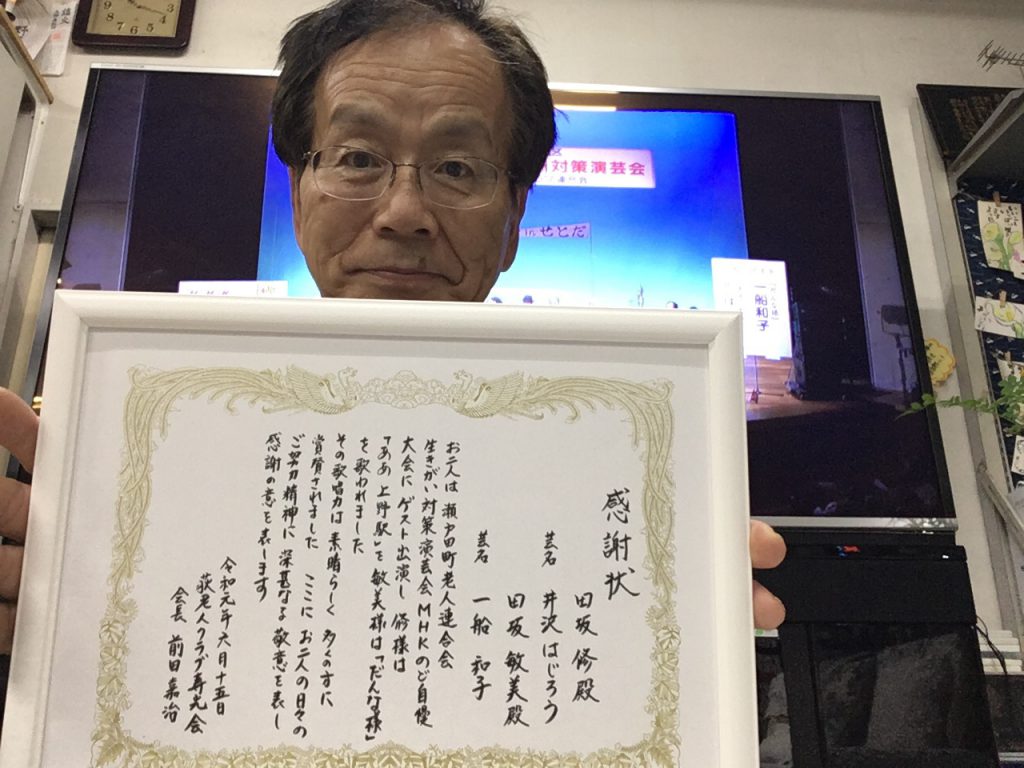 感謝状
田坂修殿
芸名 井沢はじろう
田坂敏美殿
芸名 一船和子
お二人は瀬戸田町老人連合会
生きがい対策演芸会MHKのど自優
大会にゲスト出演し修様は
「ああ上野駅」を敏美様は「だんな様」
を歌われました
その歌唱力は素晴らしく多くの方に
賞賛されました ここにお二人の日々の
ご努力精神に深甚なる敬意を表し
感謝の意を表します
令和元年六月十五日
荻老人クラブ寿光会
会長 前田嘉治
対策演芸会
inせとだ
一船和子